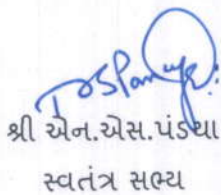 શ્રી એન.એસ.પંડયા
સ્વતંત્ર સભ્ય